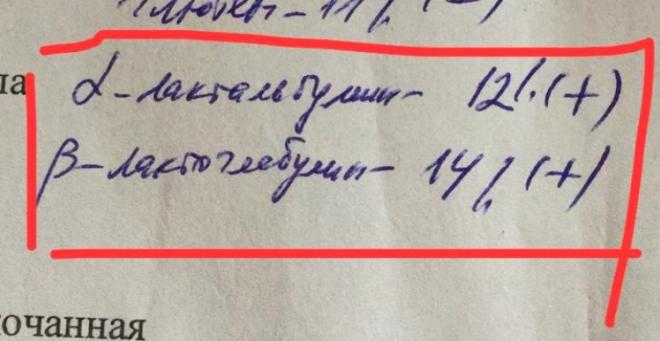 Глютен - 11% (-)
ла
α-лактальбумин - 12% (+)
β-лактоглобулин - 14% (+)
ночанная